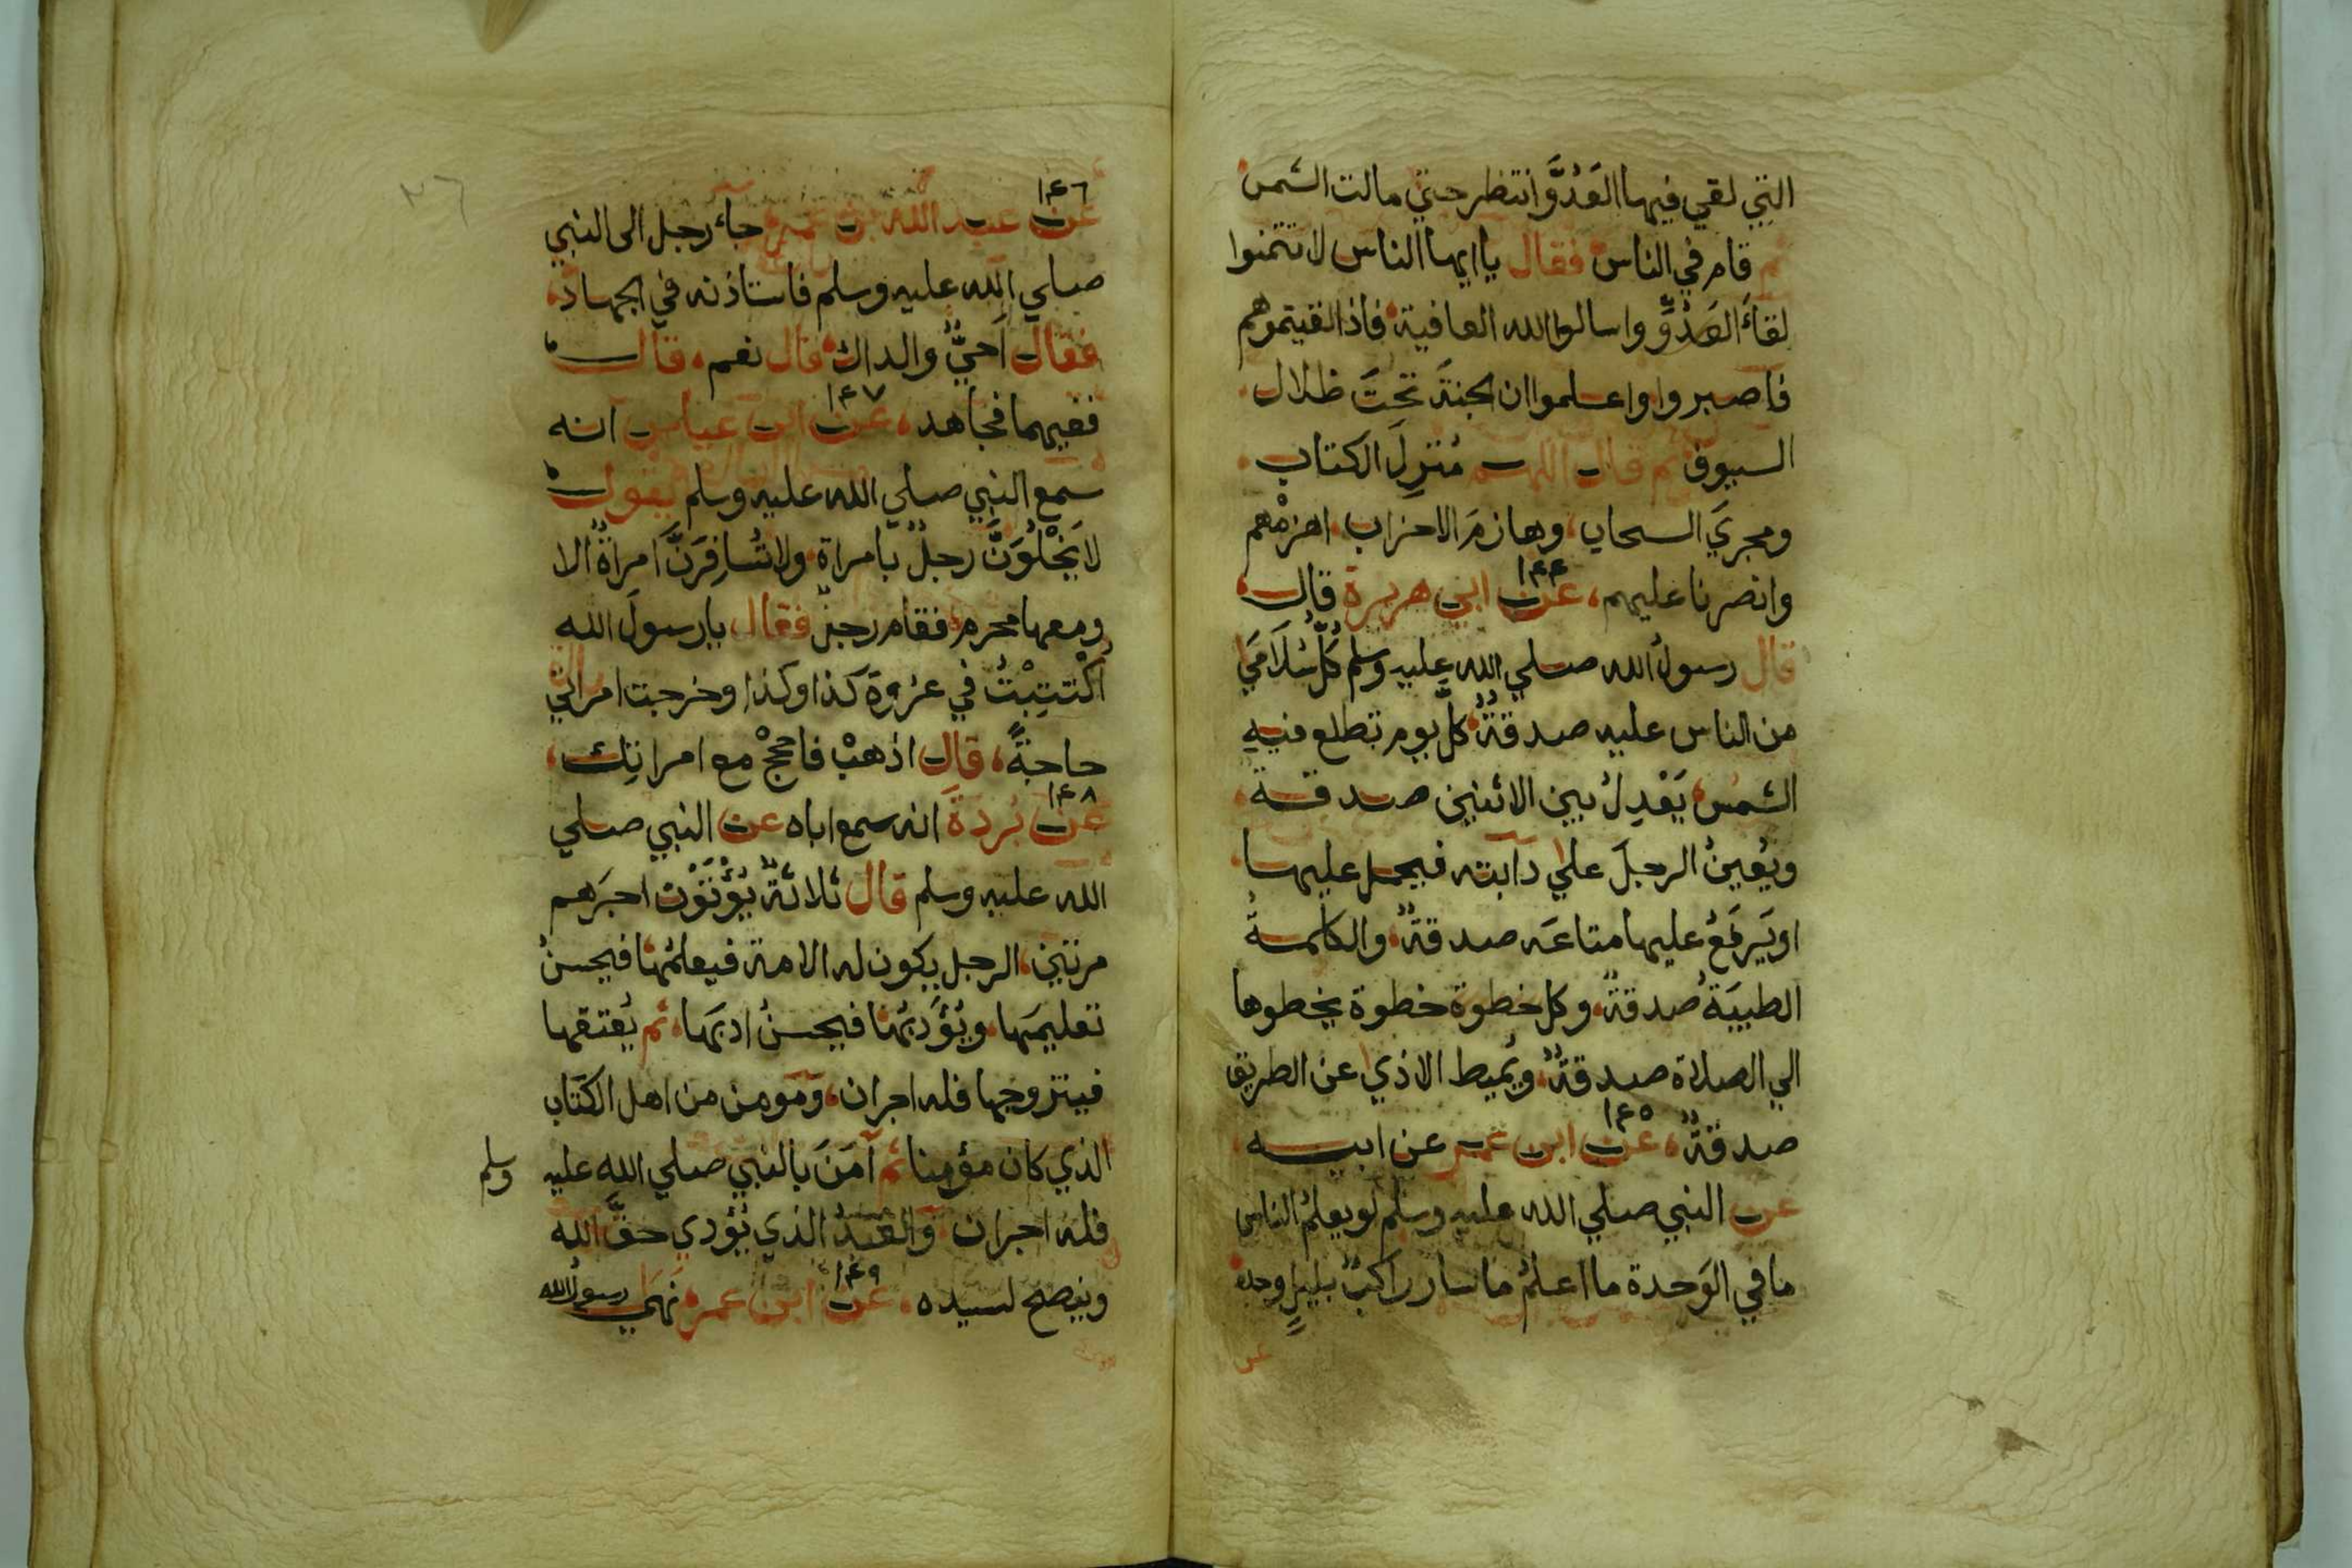 التي لقي فيها العَدُوَّ انتظر حتي مالت الشمس
ثم قام في الناس فقال يا ايها الناس لا تتمنوا
لقاءَ العَدُوِّ واسالوا الله العافية فاذا لقيتموهم
فاصبروا واعلموا ان الجنةَ تحتَ ظلال
السيوف ثم قال اللهم مُنزِلَ الكتاب
ومجريَ السحاب وهازمَ الاحزاب اهزمْهم
وانصرنا عليهم، ١٤٤ عن ابي هريرة قال
قال رسولُ الله صلي الله عليه وسلم كُلُّ سُلَامَي
من الناس عليه صدقةٌ كلَّ يوم تطلع فيهِ
الشمس يَعْدِلُ بين الاثنين صدقة
ويُعينُ الرجلَ علي دابته فيحمل عليها
او يَرفَعُ عليها متاعَه صدقةٌ والكلمةُ
الطيبَةُ صدقةٌ وكل خطوة خطوة يخطوها
الي الصلاة صدقةٌ ويُميط الاذي عن الطريق
صدقةٌ، ١٤٥ عن ابن عمر عن ابيه
عن النبي صلي الله عليه وسلم لو يعلمُ الناس
ما في الوَحدة ما اعلمُ ما سار راكبٌ بليلٍ وحده
١٤٦ عن عبد الله بن عمر جاء رجل الى النبي
صلي الله عليه وسلم فاستاذنه في الجهاد
فقال اَحيٌّ والداك قال نعم، قال
ففيهما فجاهد، ١٤٧ عن ابن عباس انه
سمع النبي صلي الله عليه وسلم يقول
لا يَخْلُوَنَّ رجلٌ بامراة ولا تُسافِرَنَّ امراةٌ الا
ومعها محرم فقام رجلٌ فقال يا رسولَ الله
اُكْتتِبْتُ في غزوة كذا وكذا وخرجت امراتي
حاجةً، قال اذهبْ فاحججْ مع امراتِك،
١٤٨ عن بُردةَ انه سمع اباه عن النبي صلي
الله عليه وسلم قال ثلاثةٌ يُؤْتَوْن اجرَهم
مرتين، الرجل يكون له الامة فيعلمُها فيحسنُ
تعليمَها، ويُؤَدبُها فيحسنُ ادبَها، ثم يُعتقها
فيتزوجها فله اجران، وَمَومن من اهل الكتاب
الذي كان مؤمنا ثم آمَنَ بالنبي صلي الله عليه وسلم
فله اجران وَالعَبدُ الذي يُؤدي حقَّ الله
وينصح لسيده، ١٤٩ عن ابن عمر نَهَي رسولُ الله